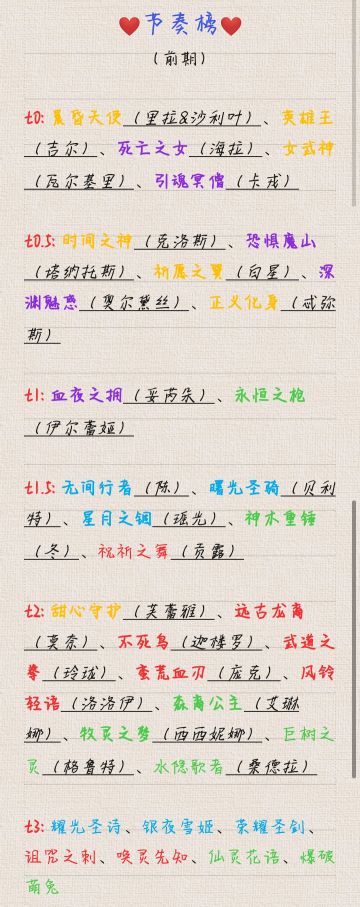 ❤️节奏榜❤️
（前期）
t0: 晨昏天使（里拉&沙利叶）、英雄王
（吉尔）、死亡之女（海拉）、女武神
（瓦尔基里）、引魂冥僧（卡戎）
t0.5: 时间之神（克洛斯）、恐惧魔山
（塔纳托斯）、祈愿之翼（白星）、深
渊魅惑（奥尔黛丝）、正义化身（忒弥
斯）
t1: 血夜之拥（妥芮朵）、永恒之枪
（伊尔蕾娅）
t1.5: 无间行者（陈）、曙光圣骑（贝利
特）、星月之钿（瑶光）、神木重锤
（冬）、祝祈之舞（贡露）
t2: 甜心守护（芙蕾雅）、远古龙裔
（莫奈）、不死鸟（迦楼罗）、武道之
拳（玲珑）、蛮荒血刃（庞克）、风铃
轻语（洛洛伊）、森离公主（艾琳
娜）、牧灵之梦（西西妮娜）、巨树之
灵（格鲁特）、水隐歌者（桑德拉）
t3: 耀光圣诗、银夜雪姬、荣耀圣剑、
诅咒之刺、唤灵先知、仙灵花语、爆破
萌兔